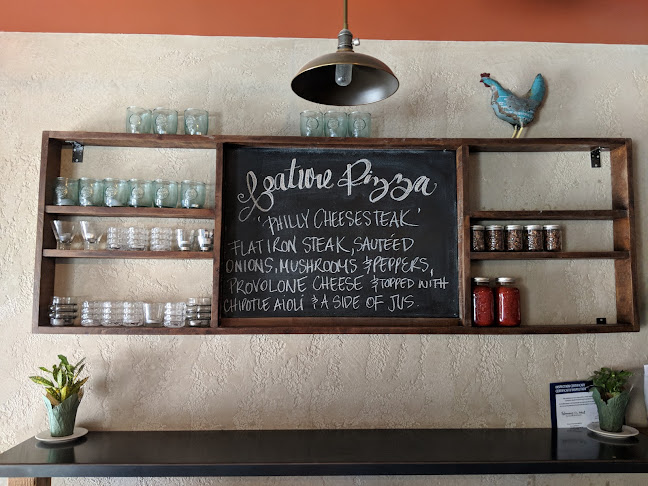 Feature Pizza
"PHILLY CHEESESTEAK'
FLAT IRON STEAK, SAUTEED
ONIONS, MUSHROOMS & PEPPERS,
PROVOLONE CHEESE & TOPPED WITH
CHIPOTLE AIOLI & A SIDE OF JUS.